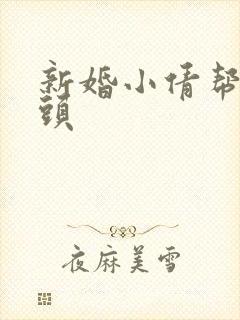 新婚小倩帮
頭
夜麻美雪